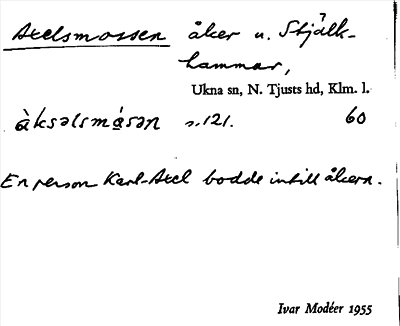 Axelsmossen åker u. Stjälk-
hammar,
Ukna sn, N. Tjusts hd, Klm. l.
àksəlsmåsən s. 121. 60
En person Karl-Axel bodde intill åkern.
Ivar Modéer 1955